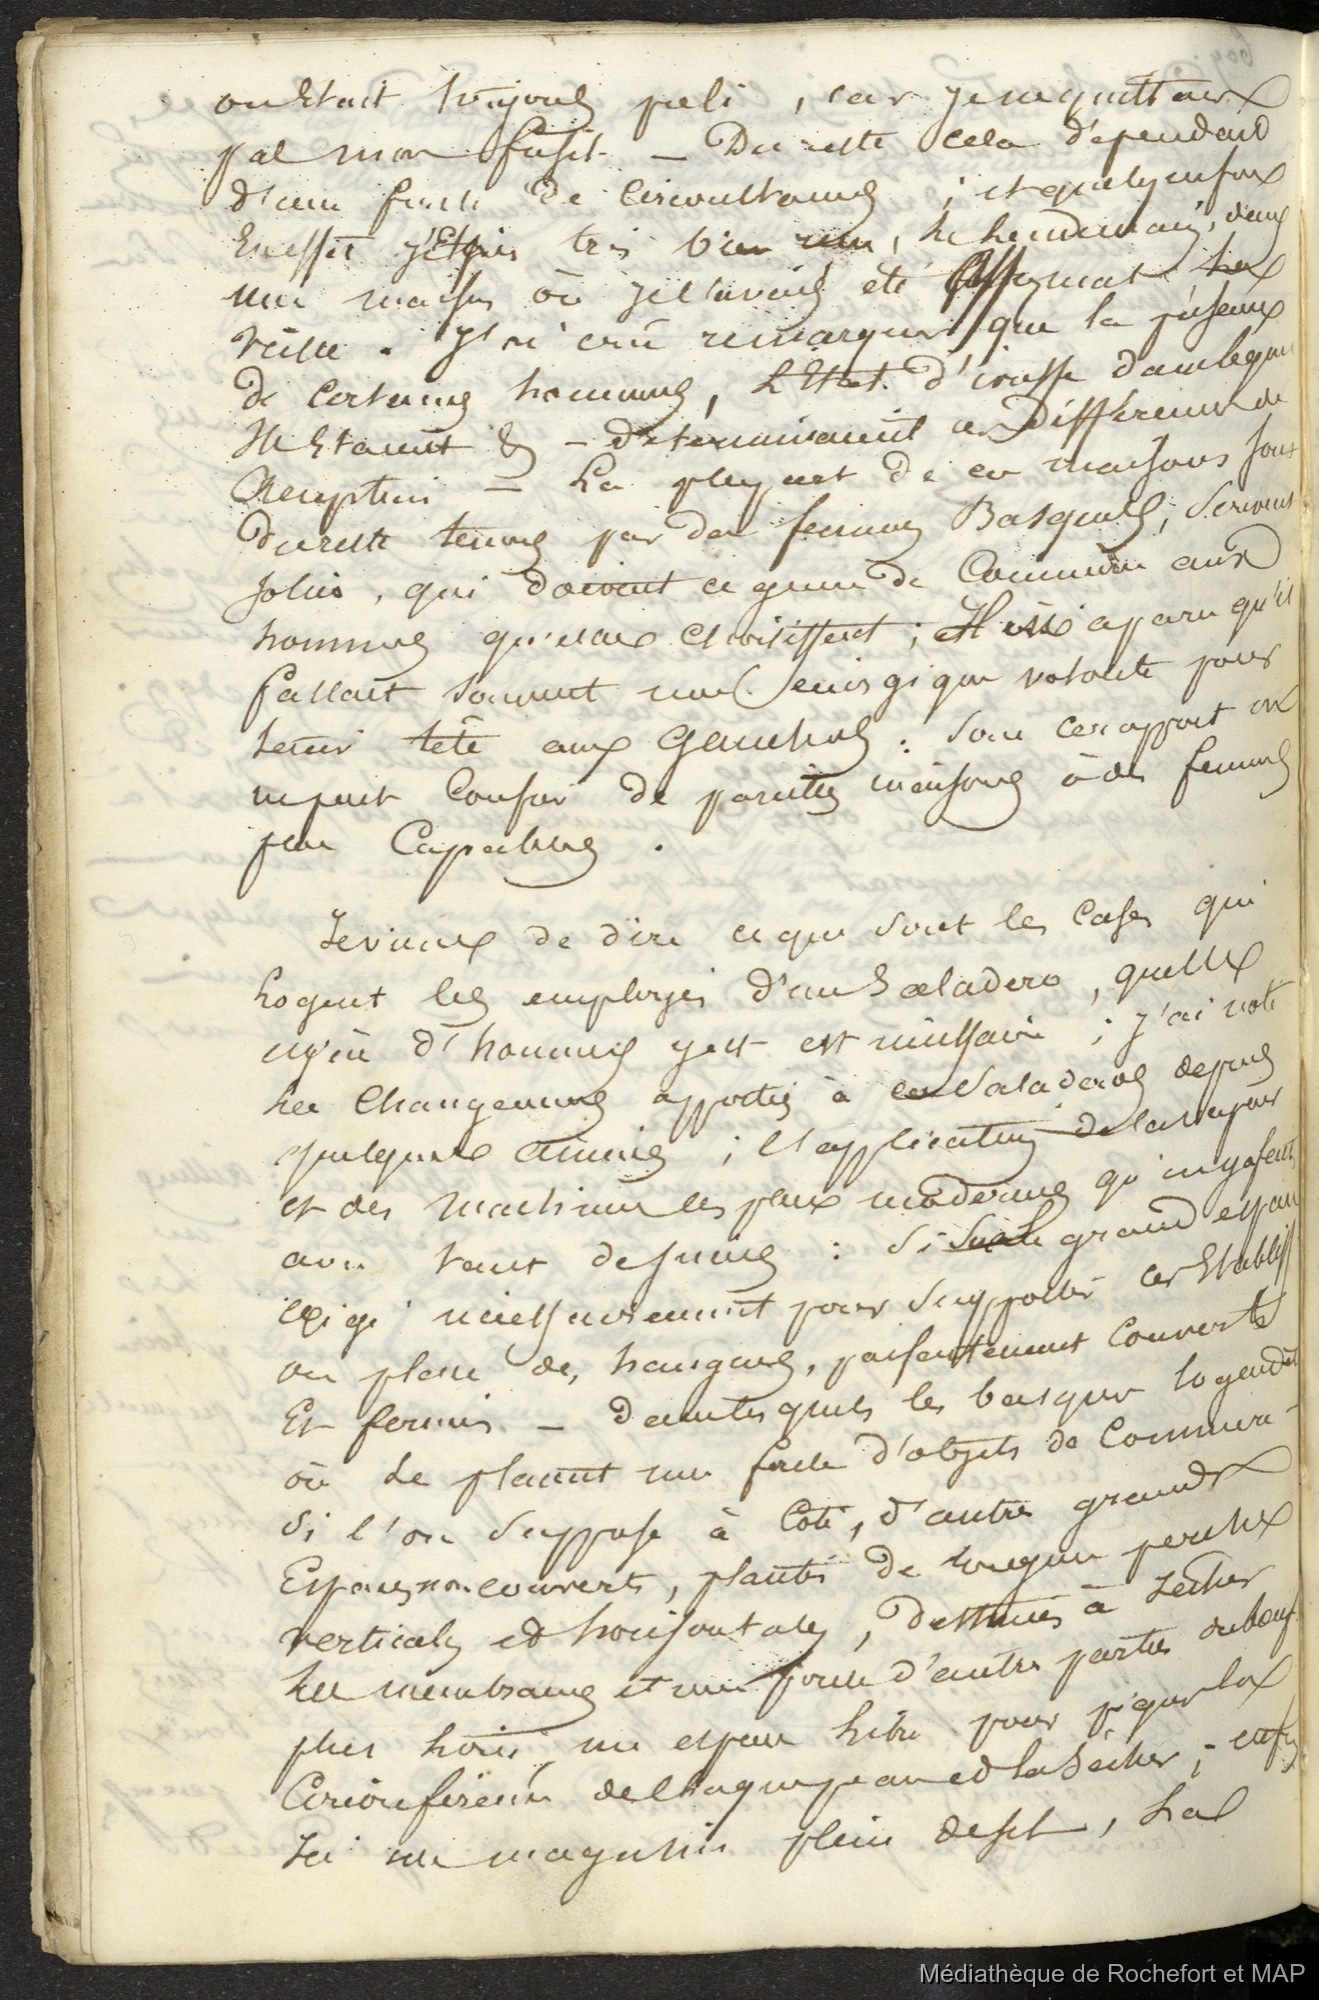 on était toujours poli, car je ne quittais
pas mon fusil — Du reste cela dépendait
d'une foule de circonstances ; et quelquefois
En effet j'étais très bien vu, le lendemain, dans
une maison où je l'avais été assez mal, la
veille. J'ai crû remarquer que la présence
de certains hommes, l'état d'ivresse dans lequel
Ils étaient & — déterminaient ces différences de
Réception — La plupart de ces maisons sont
du reste tenues par des femmes Basques, souvent
jolies, qui doivent ce genre de Commerce aux
hommes qu'elles choisissent ; Il m'a paru qu'il
fallait souvent une énergique volonté pour
tenir tête aux Gauchos : sous ce rapport on
ne peut Confier de pareilles maisons à des femmes
peu Capables.
Je viens de dire ce que sont les Cases qui
logent les employés d'un Saladero, quelle
d'hommes y est nécessaire ; j'ai noté
les Changements apportés à ces Saladeros depuis
quelques années ; l'application de la vapeur
et des machines les plus modernes qu'on y a faite
avec tant de : si grand espace
Exigé nécessairement pour supporter ces Établiss
on place des hangars, parfaitement Couverts
Et fermés — dans lesquels les basques logent
où se placent une foule d'objets de Commerce
Si l'on suppose à Côté, d'autres grands
Espaces non couverts, plantés de longues perches
verticales et horizontales, destinées à sécher
les membranes et une foule d'autres parties du bœuf
plus loin, un espace libre pour piquer la
Circonférence de chaque peau et la sécher ; enfin
Ici un magasin plein de sel, la
Médiathèque de Rochefort et MAP